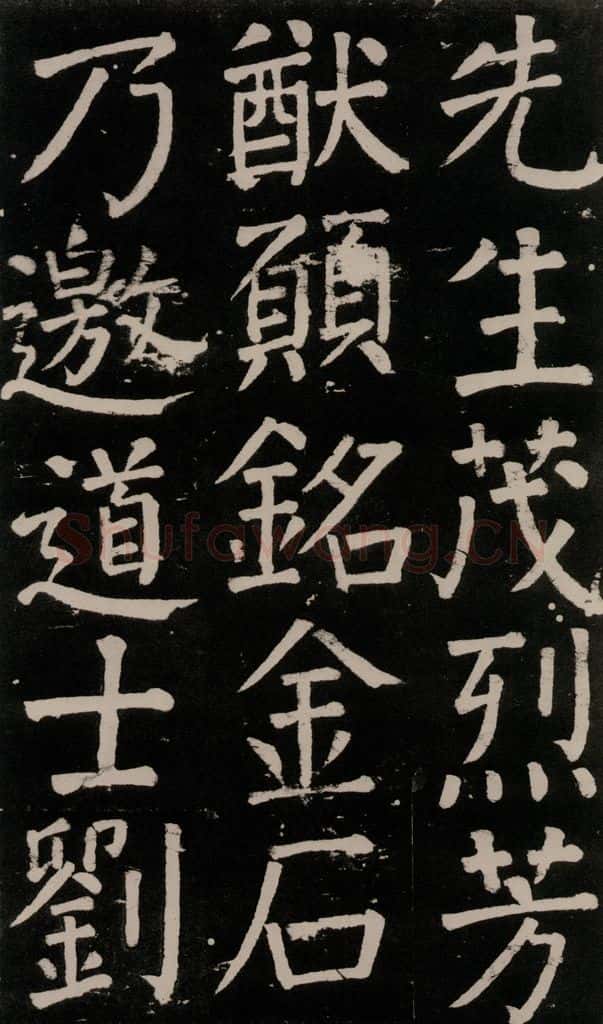 先生茂烈芳
猷願銘金石
乃邀道士劉
Shufawang.CN